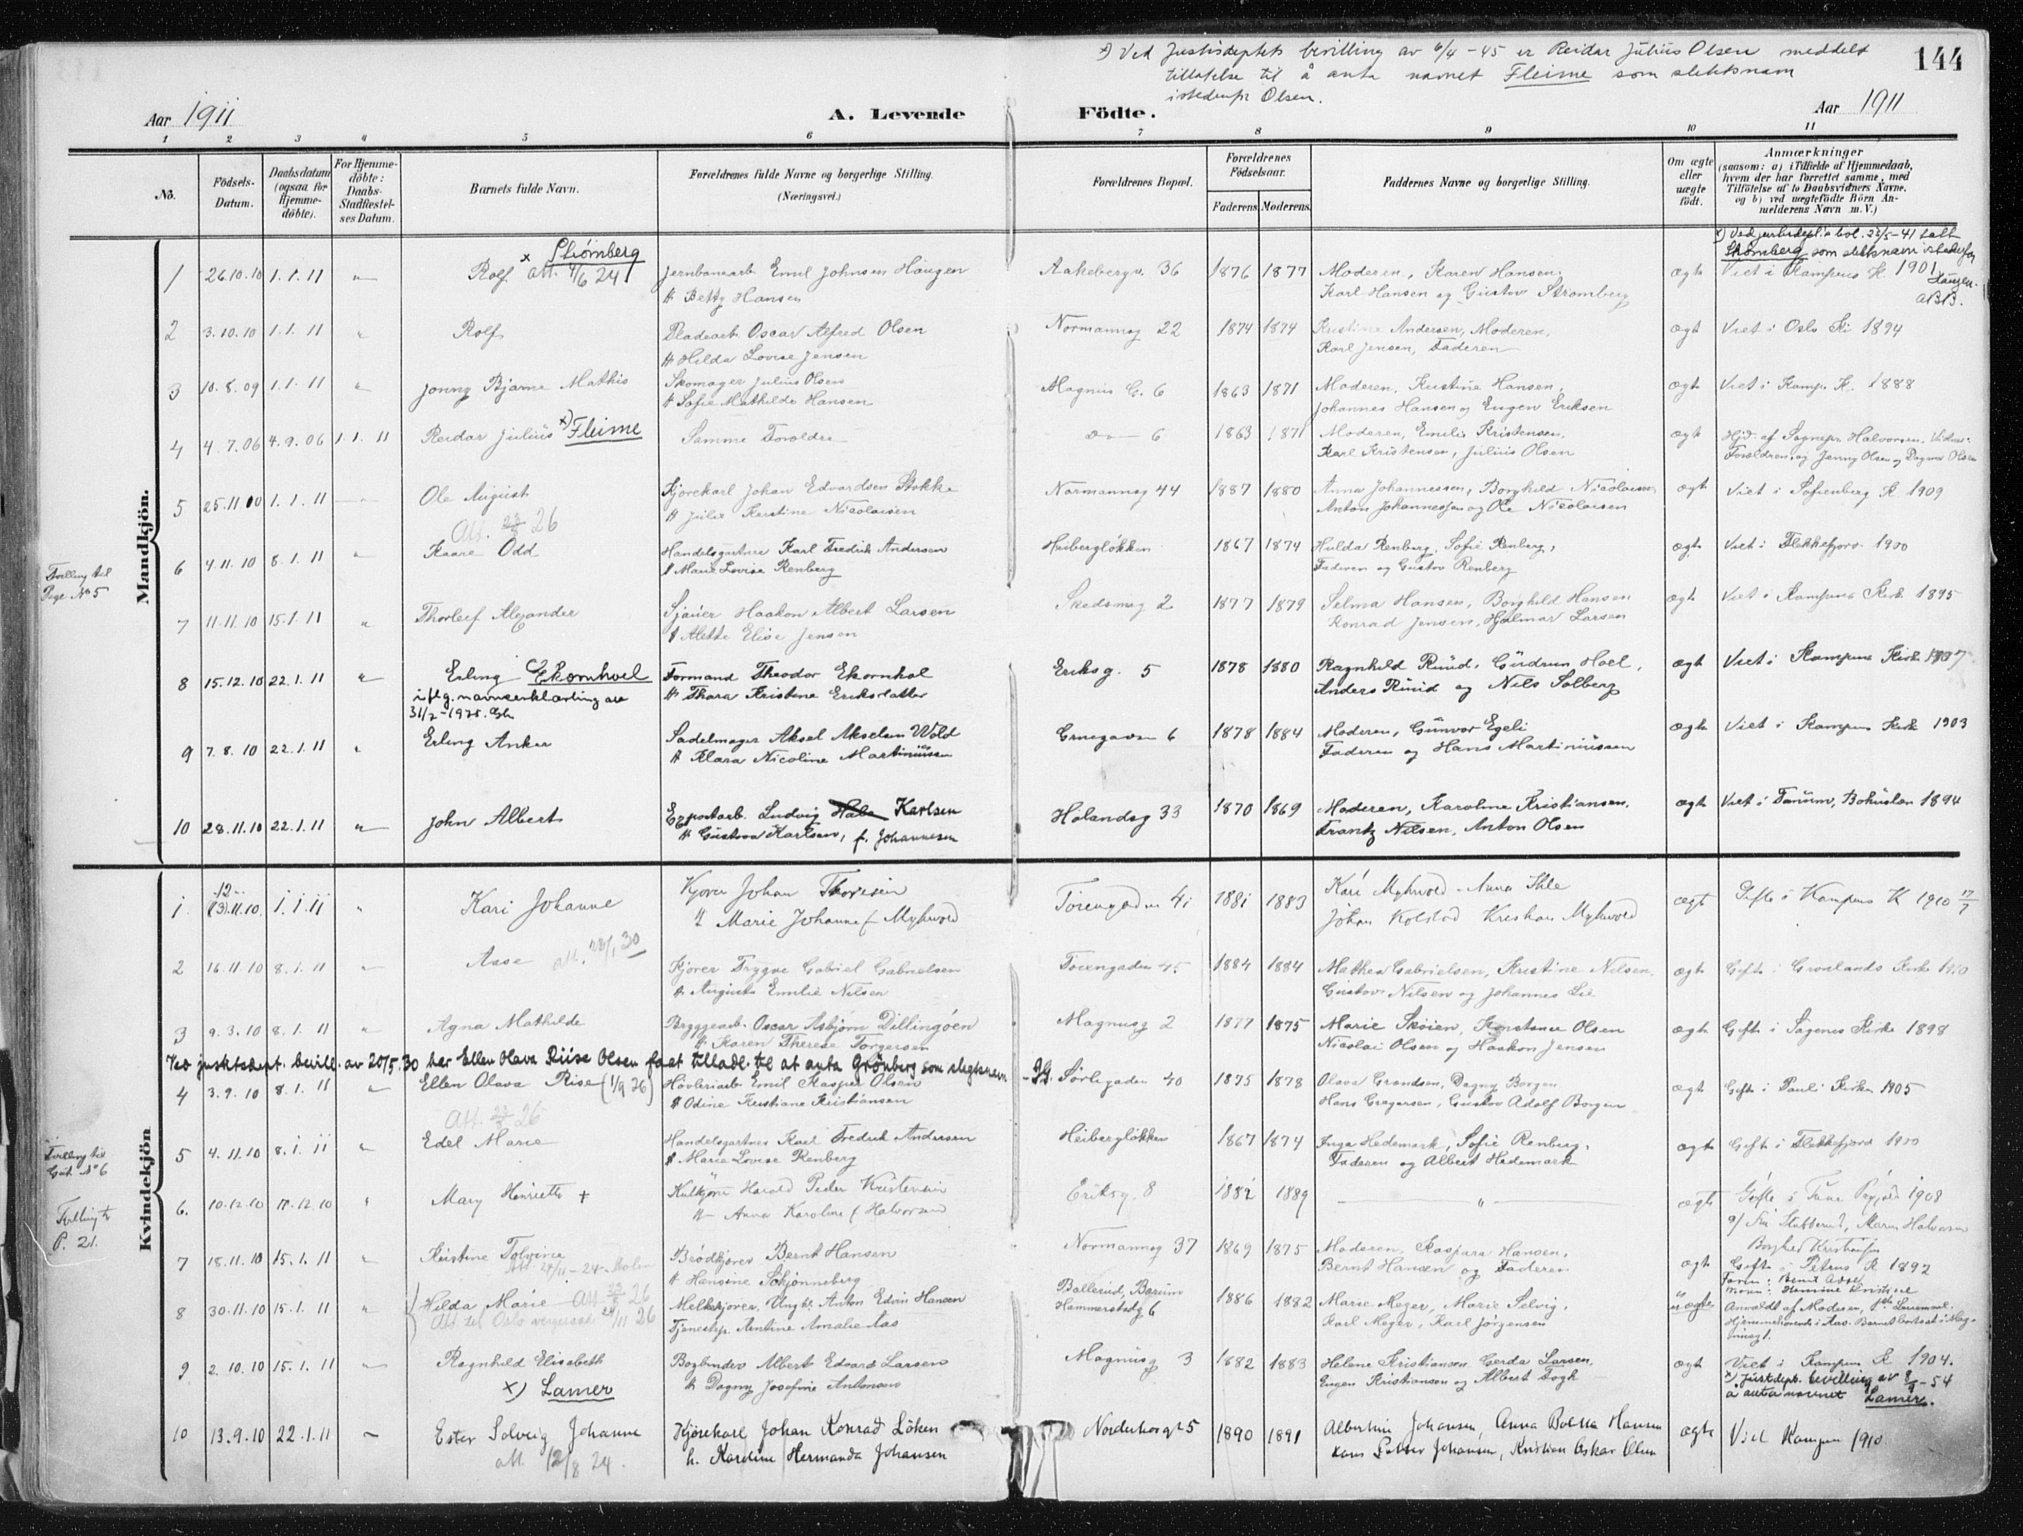 x) Ved Justisdeptets bevilling av 6/4 - 45 er Reidar Julius Olsen meddelt
tillatelse til å anta navnet Fleime som slektsnavn
istedenfr Olsen.
144
Aar 1911
A. Levende Födte.
Aar 1911
1 2 3 4 5 6 7 8 9 10 11
No.
Födsels-Datum.
Daabsdatum (ogsaa for Hjemme-döbte).
For Hjemme-döbte: Daabs-Stadfæstel-ses Datum.
Barnets fulde Navn.
Forældrenes fulde Navne og borgerlige Stilling. (Næringsvei.)
Forældrenes Bopæl.
Forældrenes Födselsaar.
Faderens. Moderens.
Faddernes Navne og borgerlige Stilling.
Om ægte eller uægte födt.
Anmærkninger
(saasom: a) i Tilfælde af Hjemmedaab, hvem der har forrettet samme, med Tilföielse af to Daabsvidners Navne, og b) ved uægtefödte Börn An-melderens Navn m. V.)
Mandkjön.
x Strömberg
x) Ved justisdept.s bev. 28/5-41 tatt
Strömberg som slektsnavn istedenfor
Haugen.
1 26.10.10 1.1.11 " Rolf att. 4/6 24 Jernbanearb Emil Johnsen Haugen Aakebergv. 36 1876 1877 Moderen, Karen Hansen, ægt Viet i Kampens K 1901
H Betty Hansen Karl Hansen og Gustav Stromberg
2 3.10.10 1.1.11 " Rolf Pladearb Oscar Alfred Olsen Normannsg 22 1874 1874 Kristine Andersen, Moderen, ægt Viet i Oslo Ki 1894
H Hilda Lovise Jensen Karl Jensen, Faderen
3 10.8.09 1.1.11 " Jonny Bjarne Mathis Skomager Julius Olsen Magnus G. 6 1863 1871 Moderen, Kristine Hansen, ægt Viet i Kamp. K. 1888
H Sofie Mathilde Hansen Johannes Hansen og Eugen Eriksen
4 4.7.06 4.9.06 1.1.11 Reidar Julius x) Fleime Samme Foreldre do 6 1863 1871 Moderen, Emilie Kristensen, ægt Hjd. af Sognepr. Halvorsen. Vidner:
Karl Kristensen, Julius Olsen Foreldrene og Jenny Olsen og Dagmar Olsen
5 25.11.10 1.1.11 Ole August Kjørekarl Johan Edvardsen Stokke Normannsg 44 1887 1880 Anna Johannessen, Borghild Nicolaisen ægt Viet i Sofienberg K 1909
H Julie Kristine Nicolaisen Anton Johannessen og Ole Nicolaisen
Att. 23/3 26
Tvilling til
Pige No 5
6 4.11.10 8.1.11 " Kaare Odd Handelsgartner Karl Fredrik Andersen Heibergløkken 1867 1874 Hulda Renberg, Sofie Renberg, ægt Viet i Flekkefjord 1900
H Marie Lovise Renberg Faderen og Gustav Renberg
7 11.11.10 15.1.11 " Thorleif Alexander Sjauer Haakon Albert Larsen Skedsmog 2 1877 1879 Selma Hansen, Borghild Hansen ægt Viet i Kampens Kirk. 1895
H Alette Elise Jensen Konrad Jensen, Hjalmar Larsen
8 15.12.10 22.1.11 " Erling Ekornhoel Formand Theodor Ekornhol Eriksg. 5 1878 1880 Ragnhild Ruud, Gudrun Hoel, ægt Viet i Kampens Kirke 1907
iflg. navneerklæring av H Thora Kristine Eriksdatter Anders Ruud og Nils Solberg
9 7.8.10 22.1.11 " Erling Anker Sadelmager Aksel Akselsen Wold 6 1878 1884 Moderen, Gunvor Egeli ægt Viet i Kampens Kirke 1903
H Klara Nicoline Martiniussen Faderen og Hans Martiniussen
10 28.11.10 22.1.11 " John Albert Exportarb. Ludvig Karlsen Hølandsg 33 1870 1869 Moderen, Karoline Kristiansen, ægt Viet i Tanum, Bohuslen 1894
H Gustava Karlsen, f. Johannesen Frantz Nilsen, Anton Olsen
Kvindekjön
1 12 (13).11.10 1.1.11 " Kari Johanne Kjører Johan Thoresen Tøiengaden 41 1881 1883 Kari Myhrvold - Anna Ihle ægt Gifte i Kampens K 1910 17/7
H Marie Johanne f Myhrvold Johan Kolstad Kristian Myhrvold
2 16.11.10 8.1.11 Aase att. 28/1 30 Kjører Trygve Gabriel Gabrielsen Tøiengaden 45 1884 1884 Mathea Gabrielsen, Kristine Nilsen, ægt Gift i Grønlands Kirke 1910
H Augusta Emilie Nilsen Gustav Nilsen og Johannes Lie
3 9.3.10 8.1.11 " Agna Mathilde Bryggearb. Oscar Asbjørn Dillingøen Magnusg 2 1877 1875 Marie Skøien, Konstance Olsen ægt Gift i Sagenes Kirke 1898
H Karen Therese Torgersen Nicolai Olsen og Haakon Jensen
Ved justisdept. bevill. av 20/5.30 har Ellen Olava Riise Olsen faat tillad. til at anta Grönberg som slegtsnavn
4 3.9.10 8.1.11 " Ellen Olava Risa (1/9 26) Høvleriarb Emil Kasper Olsen Sørligaden 40 1875 1878 Olava Grandsen, Dagny Borgen ægt Gift i Pauli Kirke 1905
H Odine Kristiane Kristiansen Hans Gregersen, Gustav Adolf Borgen
Att 23/3 26
Tvilling til
Gut No 6
5 4.11.10 8.1.11 " Edel Marie Handelsgartner Karl Fredrik Andersen Heibergløkken 1867 1874 Inga Hedemark, Sofie Renberg, ægt Gift i Flekkefjord 1900
H Marie Lovise Renberg Faderen og Albert Hedemark
Tvilling til
P. 21.
6. 10.12.10 11.12.10 " Mary Henriette + Kulkjører Harald Peder Kristensen Eriksg. 8 1882 1889 " ægt Gifte i 1908
H Anna Karoline f Halvorsen a/ Stubberud, Maren Halvorsen
7 18.11.10 15.1.11 " Kristine Tolvine Brödkjører Bernt Hansen Normannsg 37 1869 1875 Moderen, Kaspara Hansen, ægt Gift i Petrus K 1892
Att. 24/11 - 24 H Hansine Schjønneberg Bernt Hansen og Faderen
8 30.11.10 15.1.11 " Hilda Marie Att 23/8 26 Melkekjører, Ungk. Anton Edvin Hansen Ballerud, Bærum 1886 1882 Marie Meger, Marie Selvig, uægte
Att til Oslo vergeraad 24/11 26 Tjenestep. Antine Amalie Aas Hammerstadg 6 Karl Meger, Karl Jørgensen Anmeldt af Moderen,
9 2.10.10 15.1.11 Ragnhild Elisabeth Bogbinder Albert Edvard Larsen Magnusg 3 1882 1883 Helene Kristiansen, Gerda Larsen, ægt Viet i Kampens K 1904.
x) Lamer H Dagny Josefine Antonsen Eugen Kristiansen og Albert Fogh x) Justdept. bevilling av 8/9-54
å anta navnet Lamer.
10 13.9.10 22.1.11 Ester Solveig Johanne Kjørekarl Johan Konrad Löken Norderhovgt 5 1890 1891 Albertine Johansen, Anna Bolette Hansen ægte Viet Kampen 1910
att. 12/8 24. h. Karoline Hermanda Johansen Johansen, Kristian Oskar Olsen